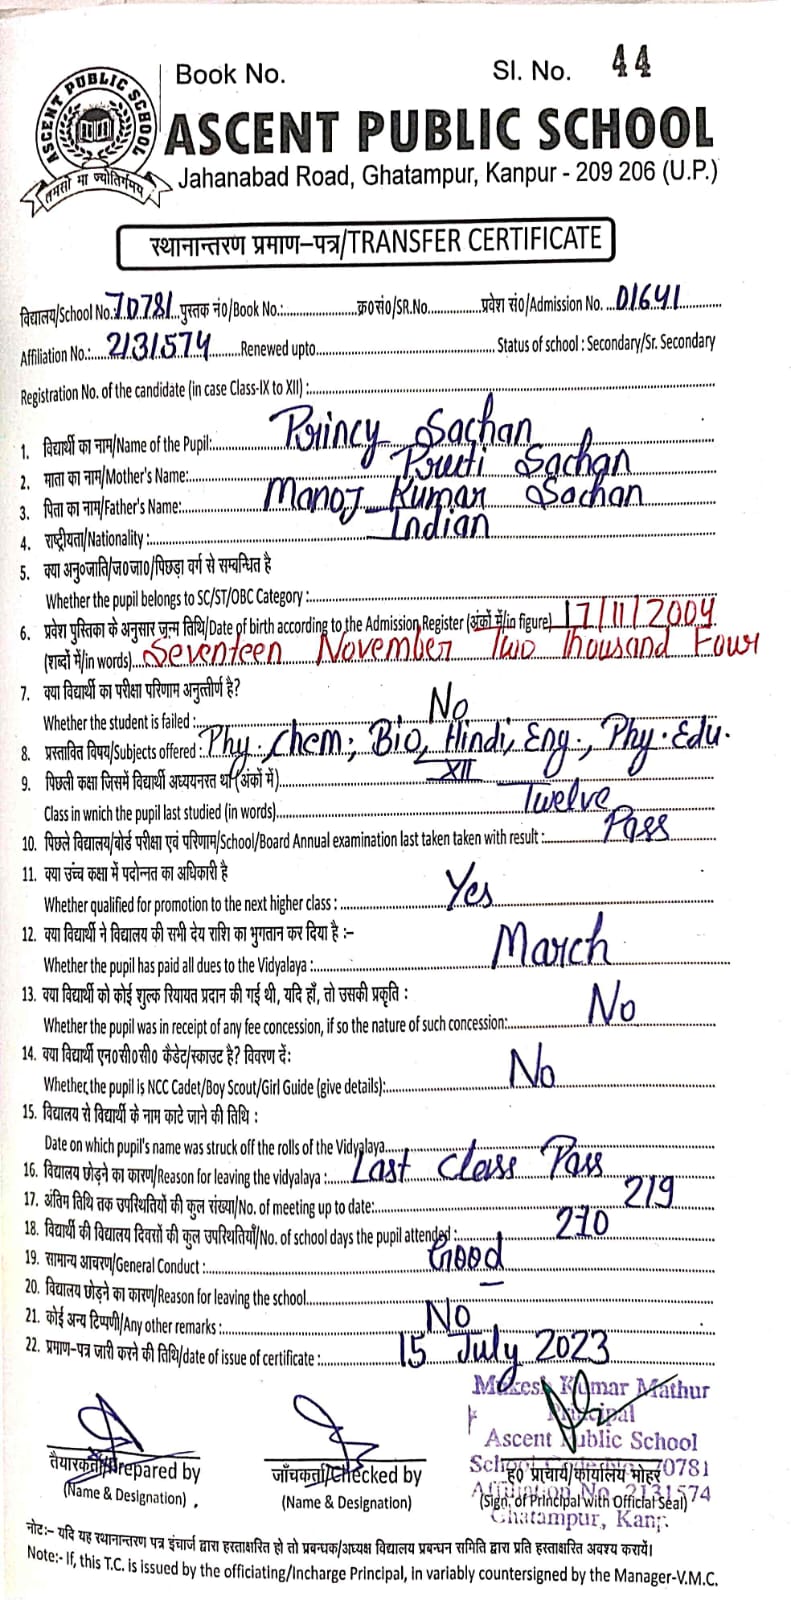 Book No. Sl. No. 44
ASCENT PUBLIC SCHOOL
ASCENT PUBLIC SCHOOL
तमसो मा ज्योतिर्गमय
Jahanabad Road, Ghatampur, Kanpur - 209 206 (U.P.)
स्थानान्तरण प्रमाण-पत्र/TRANSFER CERTIFICATE
विद्यालय/School No.: 70781 पुस्तक नं०/Book No.: क्र०सं०/SR.No. प्रवेश सं०/Admission No. 01641
Affiliation No.: 2131574 Renewed upto Status of school : Secondary/Sr. Secondary
Registration No. of the candidate (in case Class-IX to XII) :
1. विद्यार्थी का नाम/Name of the Pupil: Princy Sachan
2. माता का नाम/Mother's Name: Preeti Sachan
3. पिता का नाम/Father's Name: Manoj Kumar Sachan
4. राष्ट्रीयता/Nationality : Indian
5. क्या अनु०जाति/ज०जा०/पिछड़ा वर्ग से सम्बन्धित है
Whether the pupil belongs to SC/ST/OBC Category :
6. प्रवेश पुस्तिका के अनुसार जन्म तिथि/Date of birth according to the Admission Register (अंकों में/in figure) 17/11/2004
(शब्दों में/in words) Seventeen November Two Thousand Four
7. क्या विद्यार्थी का परीक्षा परिणाम अनुत्तीर्ण है?
Whether the student is failed : No
8. प्रस्तावित विषय/Subjects offered : Phy. Chem; Bio, Hindi, Eng., Phy. Edu.
9. पिछली कक्षा जिसमें विद्यार्थी अध्ययनरत था (अंकों में) XII
Class in wnich the pupil last studied (in words) Twelve
10. पिछले विद्यालय/बोर्ड परीक्षा एवं परिणाम/School/Board Annual examination last taken taken with result : Pass
11. क्या उच्च कक्षा में पदोन्नत का अधिकारी है
Whether qualified for promotion to the next higher class : Yes
12. क्या विद्यार्थी ने विद्यालय की सभी देय राशि का भुगतान कर दिया है :-
Whether the pupil has paid all dues to the Vidyalaya : March
13. क्या विद्यार्थी को कोई शुल्क रियायत प्रदान की गई थी, यदि हाँ, तो उसकी प्रकृति :
Whether the pupil was in receipt of any fee concession, if so the nature of such concession: No
14. क्या विद्यार्थी एन०सी०सी० कैडेट/स्काउट है? विवरण दें:
Whether, the pupil is NCC Cadet/Boy Scout/Girl Guide (give details): No
15. विद्यालय से विद्यार्थी के नाम काटे जाने की तिथि :
Date on which pupil's name was struck off the rolls of the Vidyalaya
16. विद्यालय छोड़ने का कारण/Reason for leaving the vidyalaya : Last Class Pass
17. अंतिम तिथि तक उपस्थितियों की कुल संख्या/No. of meeting up to date: 219
18. विद्यार्थी की विद्यालय दिवसों की कुल उपस्थितियाँ/No. of school days the pupil attended : 210
19. सामान्य आचरण/General Conduct : Good
20. विद्यालय छोड़ने का कारण/Reason for leaving the school —
21. कोई अन्य टिप्पणी/Any other remarks : NO
22. प्रमाण-पत्र जारी करने की तिथि/date of issue of certificate : 15 July 2023
Mukesh Kumar Mathur
Principal
Ascent Public School
तैयारकर्ता/Prepared by जाँचकर्ता/Checked by ह० प्राचार्य/कार्यालय मोहर
School 70781
(Name & Designation) (Name & Designation) (Sign. of Principal with Official Seal)
Affiliation No. 2131574
Ghatampur, Kanp.
नोट:- यदि यह स्थानान्तरण पत्र इंचार्ज द्वारा हस्ताक्षरित हो तो प्रबन्धक/अध्यक्ष विद्यालय प्रबन्धन समिति द्वारा प्रति हस्ताक्षरित अवश्य करायें।
Note:- If, this T.C. is issued by the officiating/Incharge Principal, in variably countersigned by the Manager-V.M.C.